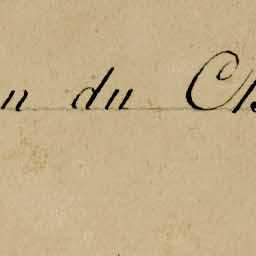 n du Ch